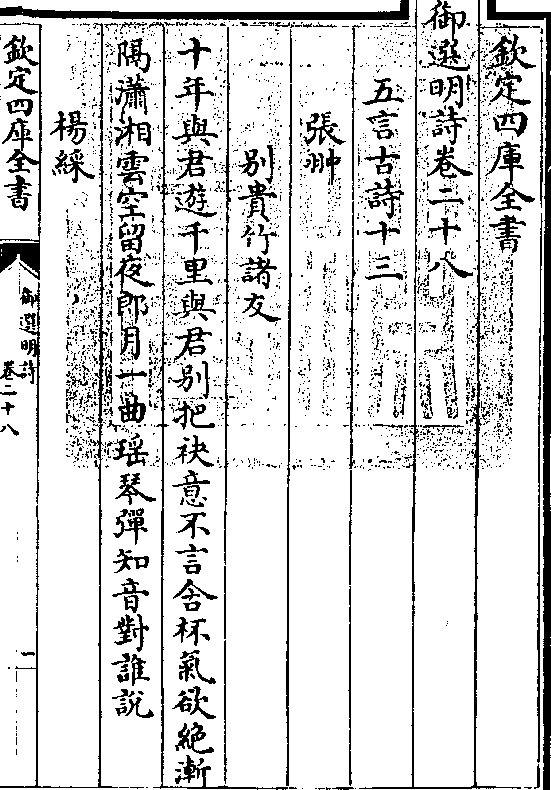 欽定四庫全書
御選明詩卷二十八
五言古詩十三
張翀
別貴竹諸友
十年與君遊千里與君別把袂意不言含杯氣欲絶漸
隔瀟湘雲空留夜郎月一曲瑶琴彈知音對誰說
楊綵
欽定四庫全書
御選明詩
卷二十八
一